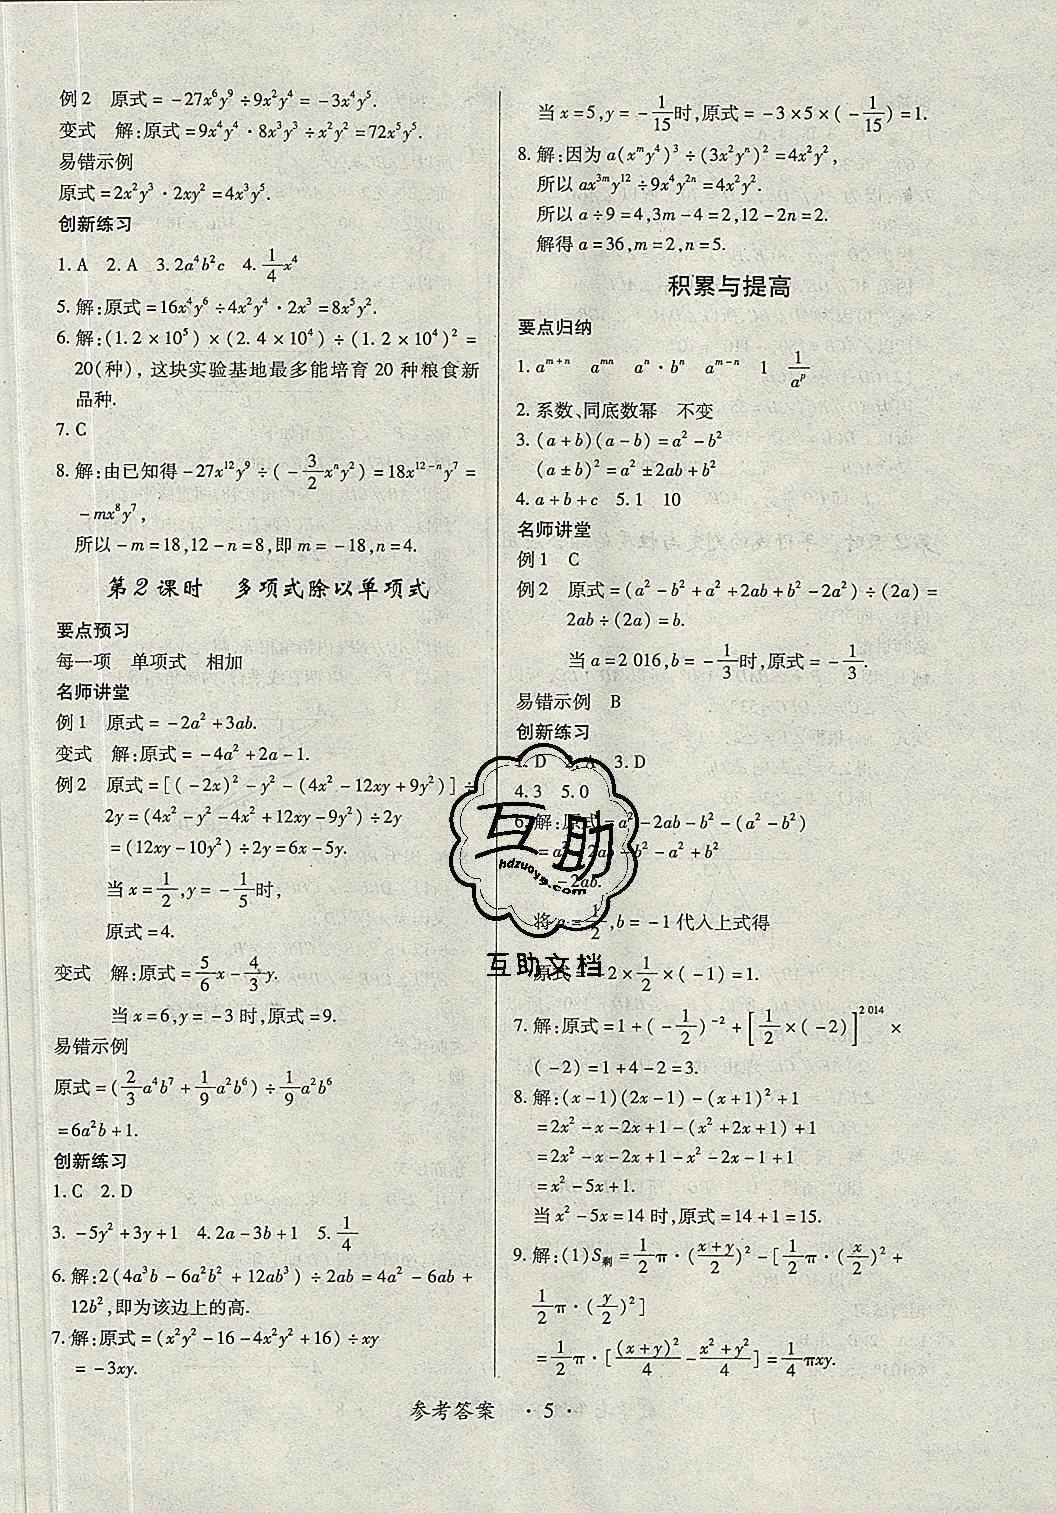 例2 原式=-27x⁶y⁹÷9x²y⁴=-3x⁴y⁵.
变式 解:原式=9x⁴y⁴·8x³y³÷x²y²=72x⁵y⁵.
易错示例
原式=2x²y³·2xy²=4x³y⁵.
创新练习
1.A 2.A 3.2a⁴b²c 4.1/4x⁴
5.解:原式=16x⁴y⁶÷4x²y⁴·2x³=8x⁵y².
6.解:(1.2×10⁵)×(2.4×10⁴)÷(1.2×10⁴)²=
20(种),这块实验基地最多能培育20种粮食新
品种.
7.C
8.解:由已知得-27x¹²y⁹÷(-3/2xⁿy²)=18x¹²⁻ⁿy⁷=
-mx⁸y⁷,
所以-m=18,12-n=8,即m=-18,n=4.
第2课时 多项式除以单项式
要点预习
每一项 单项式 相加
名师讲堂
例1 原式=-2a²+3ab.
变式 解:原式=-4a²+2a-1.
例2 原式=[(-2x)²-y²-(4x²-12xy+9y²)]÷
2y=(4x²-y²-4x²+12xy-9y²)÷2y
=(12xy-10y²)÷2y=6x-5y.
当x=1/2,y=-1/5时,
原式=4.
变式 解:原式=5/6x-4/3y.
当x=6,y=-3时,原式=9.
易错示例
原式=(2/3a⁴b⁷+1/9a²b⁶)÷1/9a²b⁶
=6a²b+1.
创新练习
1.C 2.D
3.-5y²+3y+1 4.2a-3b+1 5.1/4
6.解:2(4a³b-6a²b²+12ab³)÷2ab=4a²-6ab+
12b²,即为该边上的高.
7.解:原式=(x²y²-16-4x²y²+16)÷xy
=-3xy.
当x=5,y=-1/15时,原式=-3×5×(-1/15)=1.
8.解:因为a(xᵐy⁴)³÷(3x²yⁿ)²=4x²y²,
所以ax³ᵐy¹²÷9x⁴y²ⁿ=4x²y².
所以a÷9=4,3m-4=2,12-2n=2.
解得a=36,m=2,n=5.
积累与提高
要点归纳
1.aᵐ⁺ⁿ aᵐⁿ aⁿ·bⁿ aᵐ⁻ⁿ 1 1/aᵖ
2.系数、同底数幂 不变
3.(a+b)(a-b)=a²-b²
(a±b)²=a²±2ab+b²
4.a+b+c 5.1 10
名师讲堂
例1 C
例2 原式=(a²-b²+a²+2ab+b²-2a²)÷(2a)=
2ab÷(2a)=b.
当a=2 016,b=-1/3时,原式=-1/3.
易错示例 B
创新练习
1.D 2.A 3.D
4.3 5.0
6.解:原式=a²-2ab-b²-(a²-b²)
=a²-2ab-b²-a²+b²
=-2ab.
将a=1/2,b=-1代入上式得
原式=-2×1/2×(-1)=1.
7.解:原式=1+(-1/2)⁻²+[1/2×(-2)]²⁰¹⁴×
(-2)=1+4-2=3.
8.解:(x-1)(2x-1)-(x+1)²+1
=2x²-x-2x+1-(x²+2x+1)+1
=2x²-x-2x+1-x²-2x-1+1
=x²-5x+1.
当x²-5x=14时,原式=14+1=15.
9.解:(1)S剩=1/2π·((x+y)/2)²-[1/2π·(x/2)²+
1/2π·(y/2)²]
=1/2π·[(x+y)²/4-(x²+y²)/4]=1/4πxy.
互助
hdzuoye.com
互助文档
参考答案 ·5·